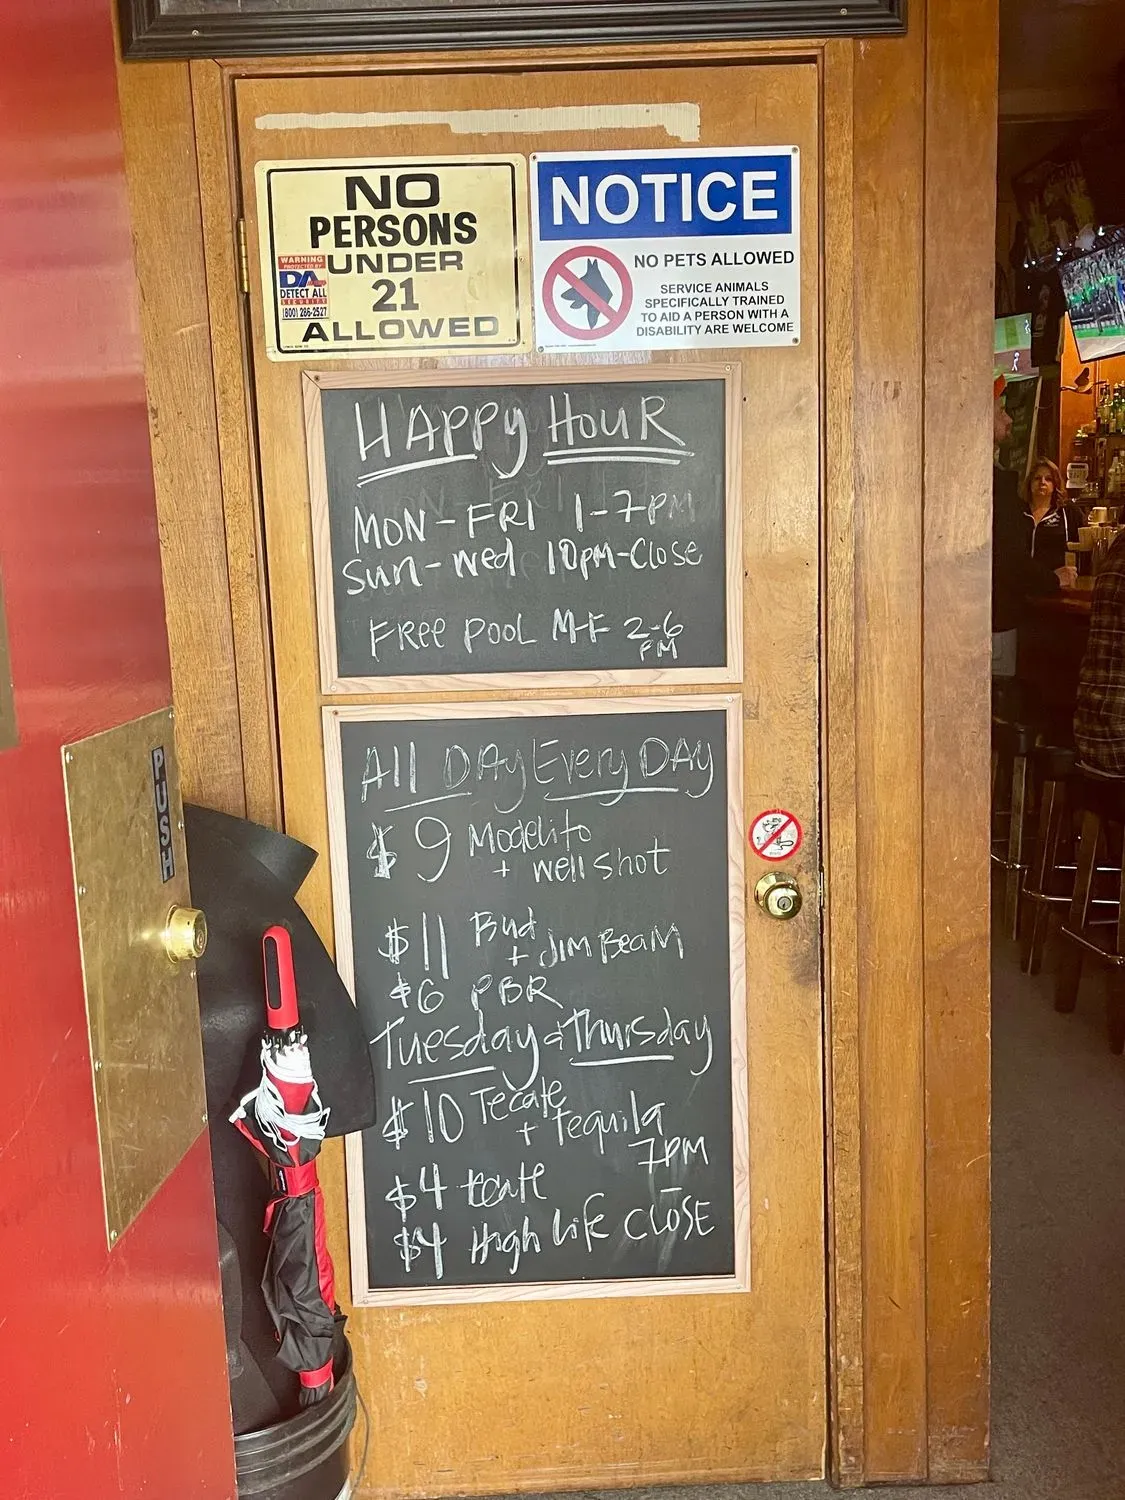 NO
PERSONS
UNDER
21
ALLOWED
WARNING
PROTECTED BY
DA
DETECT ALL
SECURITY
(800) 286-2527
NOTICE
NO PETS ALLOWED
SERVICE ANIMALS
SPECIFICALLY TRAINED
TO AID A PERSON WITH A
DISABILITY ARE WELCOME
HAPPy HOUR
MON-FRI 1-7PM
Sun-Wed 10pm-Close
FRee POOL M-F 2-6
PM
All DAy Every DAy
$9 Modelito
+ well shot
$11 Bud
+ JIM BeaM
$6 PBR
Tuesday & Thursday
$10 Tecate
+ Tequila
7PM
$4 tecate
-
$4 High Life CLOSE
PUSH